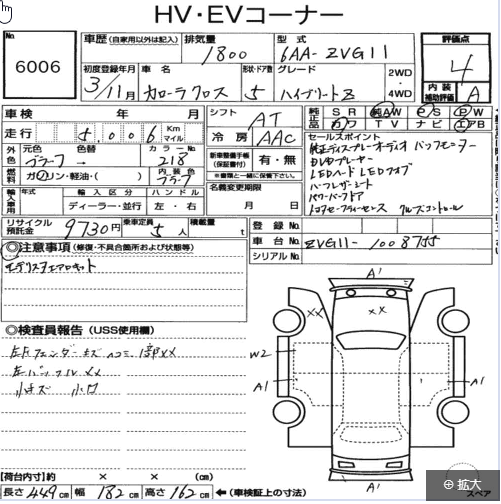 HV・EVコーナー
No. 6006
車歴 (自家用以外は記入) 排気量 1800 型式 6AA-ZVG11
初度登録年月 3/11月 車名 カローラクロス 形状・ドア数 5 グレード ハイブリードZ 2WD・4WD
評価点 4
内装補助評価 A
車検 年 月 シフト AT
走行 5,006 Km マイル 冷房 AAC
純正品 SR 純AW PS PW
カワ TV ナビ エアB
外色 元色 ブラック 色替 カラーNo. 218
燃料 ガソリン・軽油・( ) 内装色 ブラック
新車整備手帳(保証書付) 有・無
※書類と一緒に保管して下さい。
輸入車用 年式 輸入区分 ディーラー・並行 ハンドル 左・右
名義変更期限 月 日
セールスポイント
純正ディスプレーオーディオ バックモニター
DVDプレーヤー
LEDヘッド LEDフォグ
ハーフレザーシート
パワーバックドア
トヨタセーフティーセンス クルーズコントロール
リサイクル預託金 9730円 乗車定員 5人 積載量 t
登録No.
車台No. ZVG11-1008755
シリアルNo.
◎注意事項 (修復・不具合箇所および状態等)
モデリスタエアロキット
◎検査員報告 (USS使用欄)
左Fフェンダーキズ ヘコミ 1部XX
左バックルXX
小キズ 小凹
A1
XX XX
W2
A1 A1
A1
スペア
【荷台内寸】 × × (cm)
長さ 449cm 幅 182cm 高さ 162cm ←(車検証上の寸法)
拡大